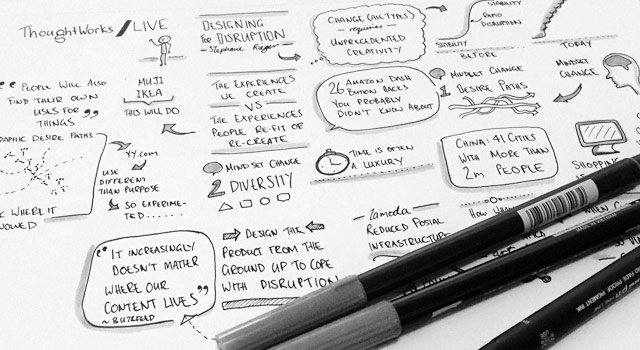 ThoughtWorks / LIVE
DESIGNING
for DISRUPTION
- Stephanie Rieger
CHANGE (ALL TYPES)
requires
UNPRECEDENTED
CREATIVITY
STABILITY
RAPID
DISRUPTION
STABILITY
BEFORE
TODAY
"PEOPLE WILL ALSO
FIND THEIR OWN
USES FOR
THINGS"
MUJI
IKEA
THIS WILL DO
THE EXPERIENCES
WE CREATE
VS
THE EXPERIENCES
PEOPLE RE-FIT OR
RE-CREATE
26 AMAZON DASH
BUTTON HACKS
YOU PROBABLY
DIDN'T KNOW ABOUT
MINDSET CHANGE
1 DESIRE PATHS
MINDSET
CHANGE
DESIRE PATHS
YY.com
USE
DIFFERENT
THAN PURPOSE
SO EXPERIME-
TED......
WHERE IT
MINDSET CHANGE
2 DIVERSITY
TIME IS OFTEN
A LUXURY
CHINA: 41 CITIES
WITH MORE THAN
2m PEOPLE
SHOPPING
"IT INCREASINGLY
DOESN'T MATTER
WHERE OUR
CONTENT LIVES"
~ BUZZFEED
DESIGN THE
PRODUCT FROM THE
GROUND UP TO COPE
WITH DISRUPTION
Lamoda
REDUCED POSTAL
INFRASTRUCTURE
HOW
WHEN
FADE PROOF PIGMENT INK